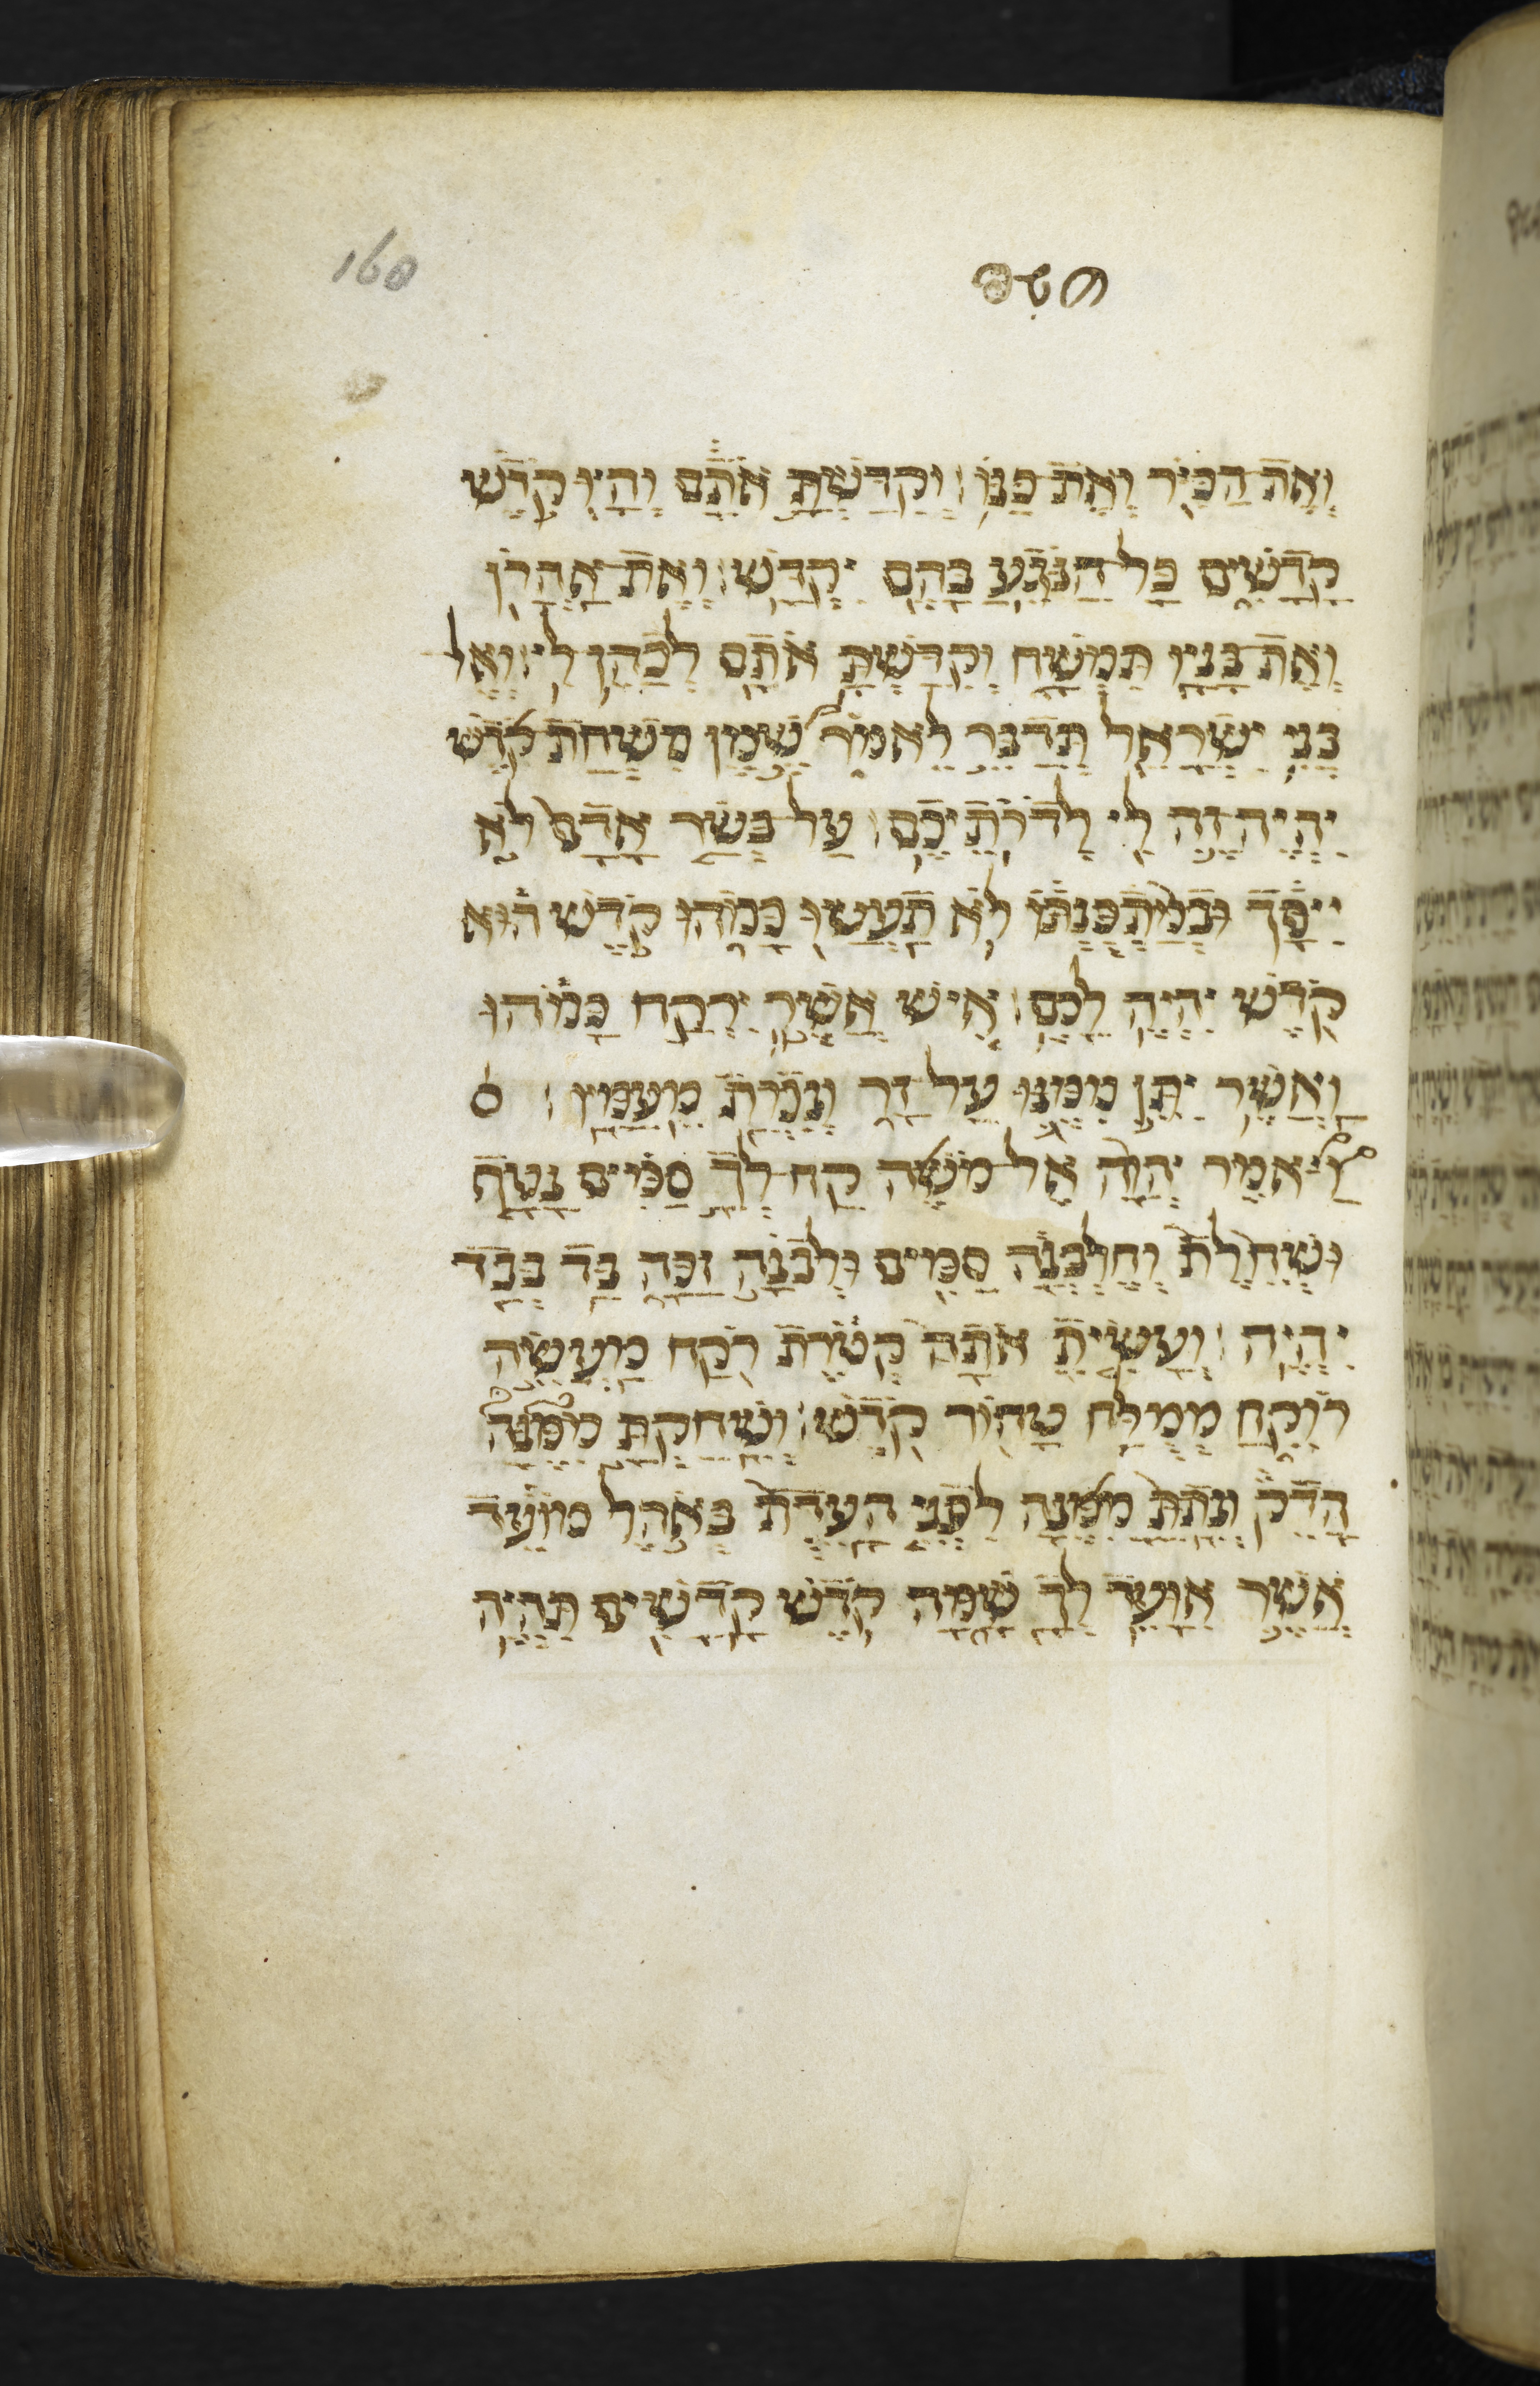 160
תשא
ואת הכיר ואת כנו׃ וקדשת אתם והיו קדש
קדשים כל הנגע בהם יקדש׃ ואת אהרן
ואת בניו תמשח וקדשת אתם לכהן לי׃ ואל
בני ישראל תדבר לאמר שמן משחת קדש
יהיה זה לי לדרתיכם׃ על בשר אדם לא
ייסך ובמתכנתו לא תעשו כמהו קדש הוא
קדש יהיה לכם׃ איש אשר ירקח כמהו
ואשר יתן ממנו על זר ונכרת מעמיו׃ ס
ויאמר יהוה אל משה קח לך סמים נטף
ושחלת וחלבנה סמים ולבנה זכה בד בבד
יהיה׃ ועשית אתה קטרת רקח מעשה
רוקח ממלח טהור קדש׃ ושחקת ממנה
הדק ונתת ממנה לפני העדת באהל מועד
אשר אועד לך שמה קדש קדשים תהיה